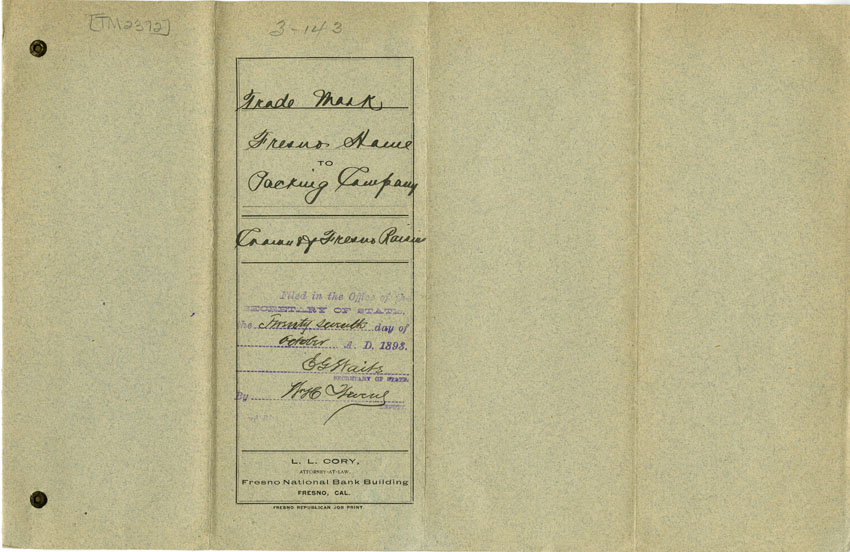 [TM2372]
3-143
Trade Mark
Fresno Home
TO
Packing Company
Fresno Raisin
Filed in the Office of the
SECRETARY OF STATE,
the Twenty seventh day of
October A. D. 1893.
E G Waite
SECRETARY OF STATE.
By
DEPUTY.
L. L. CORY,
ATTORNEY-AT-LAW,
Fresno National Bank Building
FRESNO, CAL.
FRESNO REPUBLICAN JOB PRINT